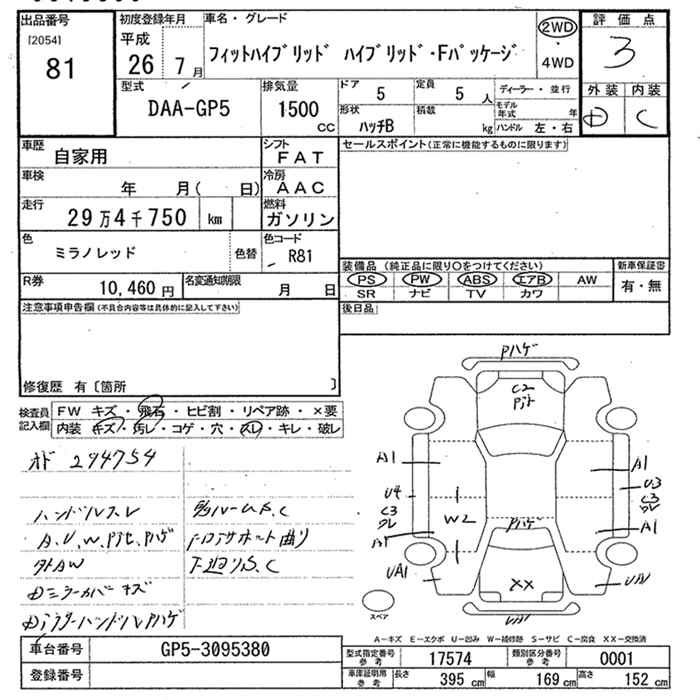 出品番号
[2054]
81
初度登録年月
平成
26 7 月
車名・グレード
フィットハイブリッド ハイブリッド・Fパッケージ
2WD
・
4WD
評価点
3
外装 内装
D C
型式
DAA-GP5
排気量
1500
CC
ドア 5
定員 5 人
ディーラー・並行
モデル年式 年
形状 ハッチB
積載 kg
ハンドル 左・右
車歴 自家用
シフト FAT
車検 年 月( 日)
冷房 AAC
走行 29万4千750 km
燃料 ガソリン
色 ミラノレッド 色替
色コード R81
R券 10,460円
名変通知期限 月 日
セールスポイント(正常に機能するものに限ります)
装備品(純正品に限り○をつけてください)
新車保証書
PS PW ABS エアB AW
有・無
SR ナビ TV カワ
後日品
注意事項申告欄(不具合内容等は具体的に記入して下さい)
修復歴 有〔箇所 〕
検査員記入欄
FW キズ・飛石・ヒビ割・リペア跡・×要
内装 キズ・汚レ・コゲ・穴・スレ・キレ・破レ
オド 294754
ハンドルスレ
A.U.W.Pﾋﾋ.Pハゲ
外AW
Dミラーカバーキズ
DアウターハンドルPハゲ
下廻りS.C
Pハゲ
C2
A1
A1
U4
U3
C3
クレ
C3
クレ
W2
Pハゲ
A1
A1
UA1
UA1
XX
スペア
A-キズ E-エクボ U-凹み W-補修跡 S-サビ C-腐食 XX-交換済
車台番号 GP5-3095380
登録番号
型式指定番号参考 17574
類別区分番号参考 0001
車庫証明用参考
長さ 395 cm
幅 169 cm
高さ 152 cm